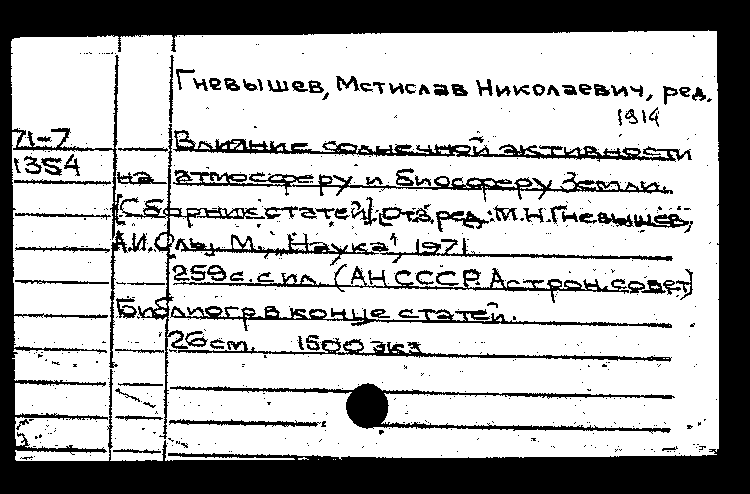 Гневышев, Мстислав Николаевич, ред.
1914
71-7
1354
Влияние солнечной активности
на атмосферу и биосферу Земли.
[Сборник статей]. Отв. ред.: М.Н. Гневышев,
А.И. Оль. М., "Наука", 1971
259 с. с ил. (АН СССР. Астрон. совет)
Библиогр. в конце статей.
26 см. 1500 экз